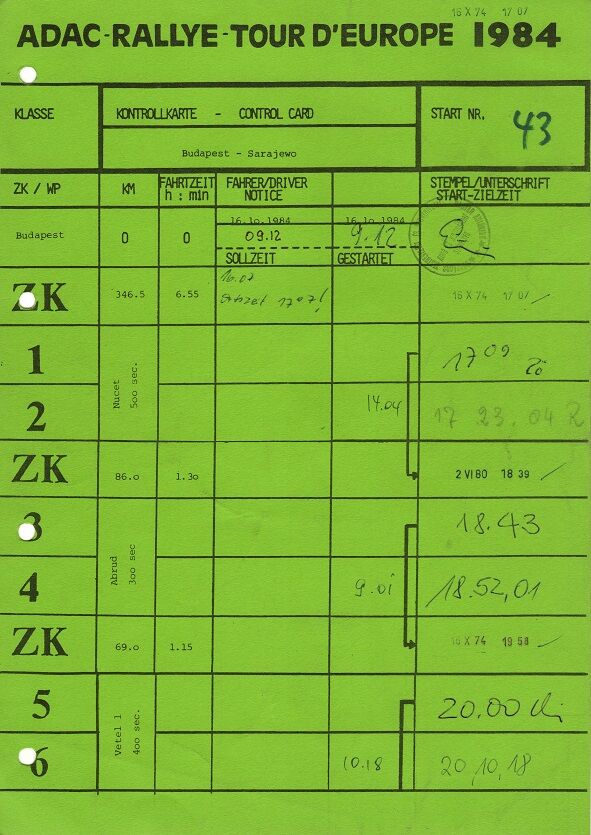 16 X 74 17 07
ADAC-RALLYE-TOUR D'EUROPE 1984
KLASSE
KONTROLLKARTE - CONTROL CARD
START NR.
43
Budapest - Sarajewo
ZK / WP
KM
FAHRTZEIT
h : min
FAHRER/DRIVER
NOTICE
STEMPEL/UNTERSCHRIFT
START-ZIELZEIT
16.1o.1984
16.1o.1984
Budapest
0
0
09.12
9.12
SOLLZEIT
GESTARTET
ZK
346.5
6.55
16.07
17 07!
16 X 74 17 07
1
Nucet
5oo sec.
17 09
2
14.04
17 23.04
ZK
86.o
1.3o
2 VI 80 18 39
3
Abrud
3oo sec
18.43
4
9.01
18.52,01
ZK
69.o
1.15
16 X 74 19 58
5
Vetel 1
4oo sec.
20.00
6
10.18
20,10,18